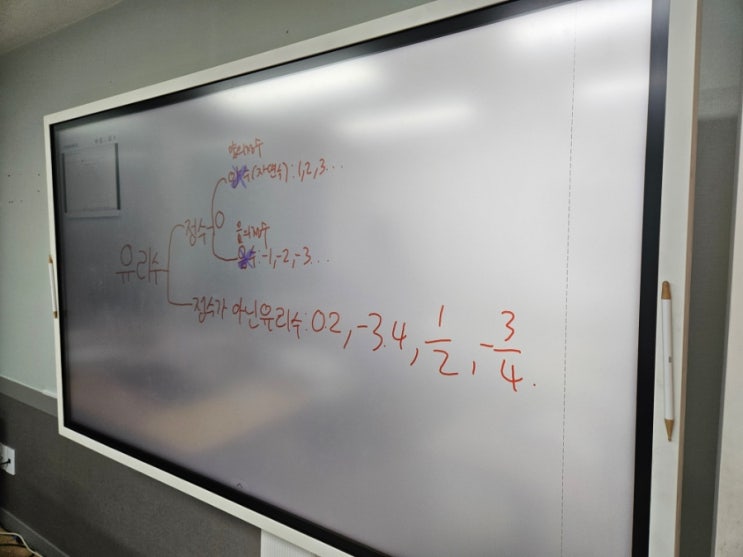 양의정수
양수(자연수): 1, 2, 3...
정수 0
음의정수
음수: -1, -2, -3...
유리수
정수가 아닌 유리수: 0.2, -3.4, 1/2, -3/4.